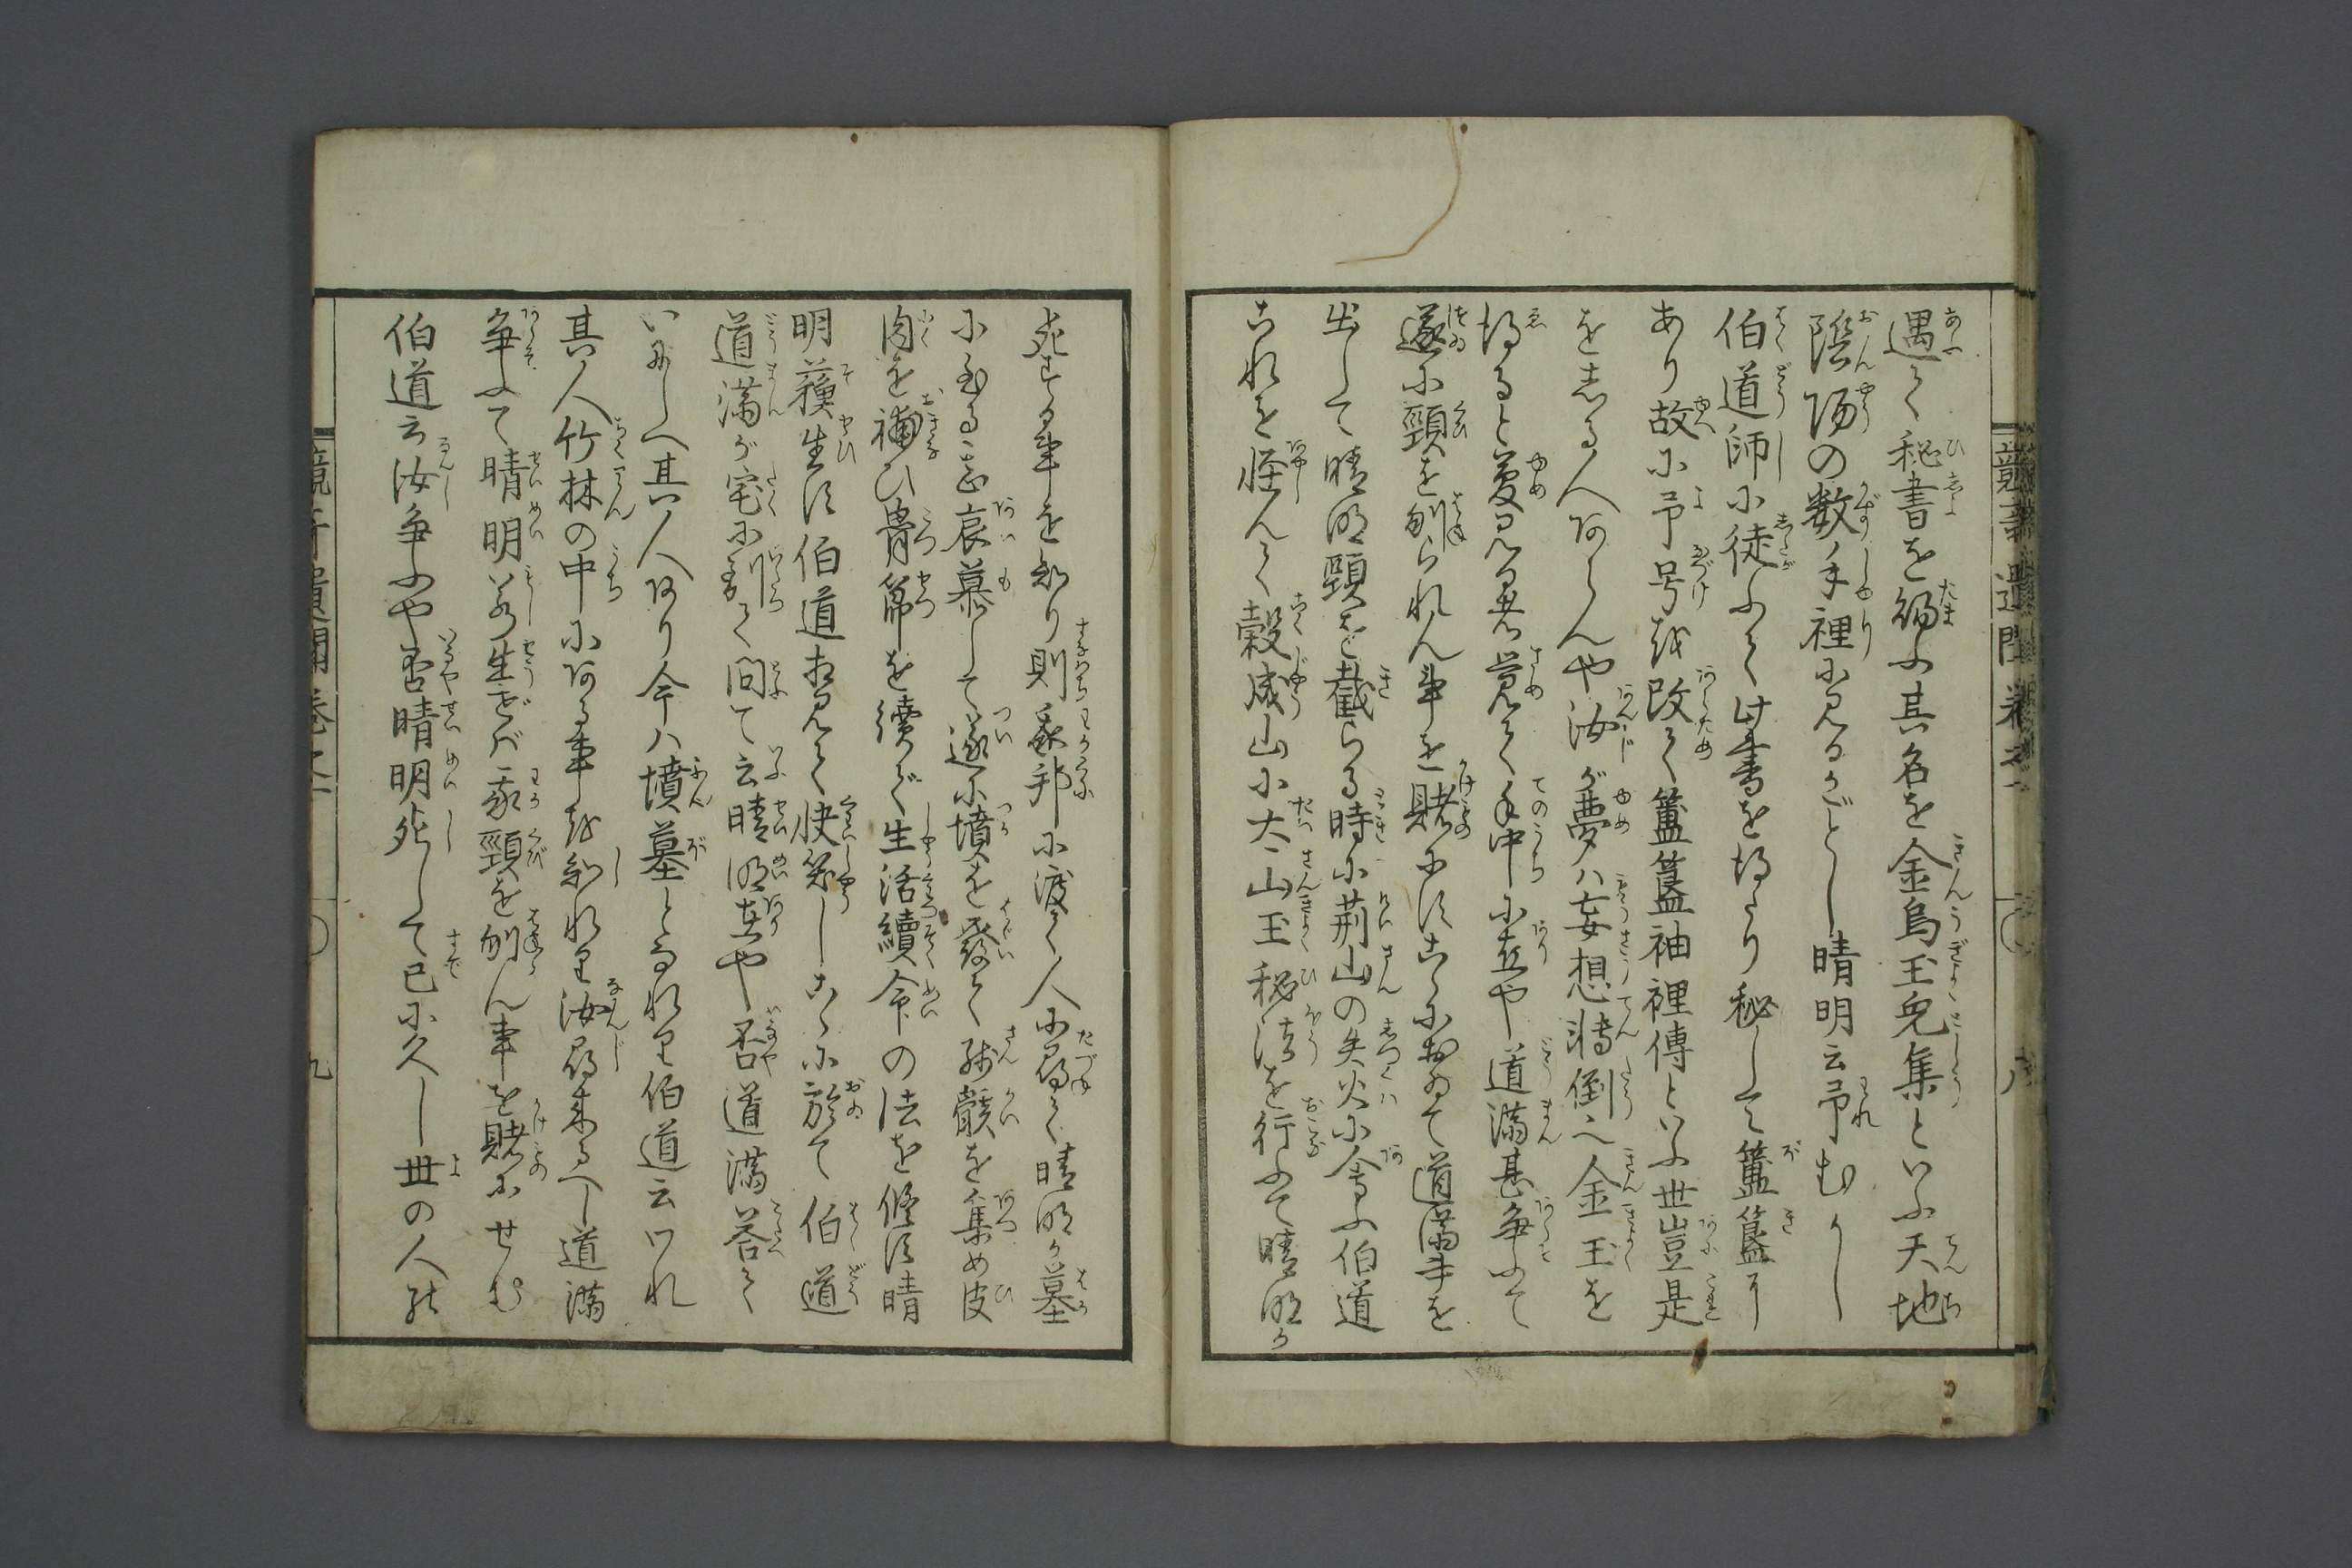 遇て秘書を得ふ其名を金烏玉兎集といふ天地
陰陽の数手裡に見るがごとし晴明云予むかし
伯道師に徒ふて此書を得たり秘して簠簋に
あり故に予号越改て簠簋袖裡傳といふ世豈是
をしる人あらんや汝が夢ハ妄想轉倒心金玉を
得ると夢見る共覚て手中に在や道満甚争ふて
遂に頸を刎られん事を賭にすこゝにおゐて道満書を
出して晴明頸を截らる時に荊山の失火に会ふ伯道
これを怪んて穀城山に太山玉秘法を行ふて晴明が
死する事を知り則我邦に渡て人に尋て晴明が墓
に至る哀慕して遂に墳を發て残骸を集め皮
肉を補ひ骨節を續ぎ生活續命の法を修す晴
明蘓生す伯道相見て快笑しこゝに於て伯道
道満が宅に到て問て云晴明在や否道満答て
いにしへ其人あり今ハ墳墓となれり伯道云われ
其人竹林の中にある事越知れり汝尋来るへし道満
争ふて晴明若生せバ我頸を刎ん事を賭にせむ
伯道云汝争ふや否晴明死して已に久し世の人の
競奇遺聞巻之一
八
競奇遺聞巻之一
九